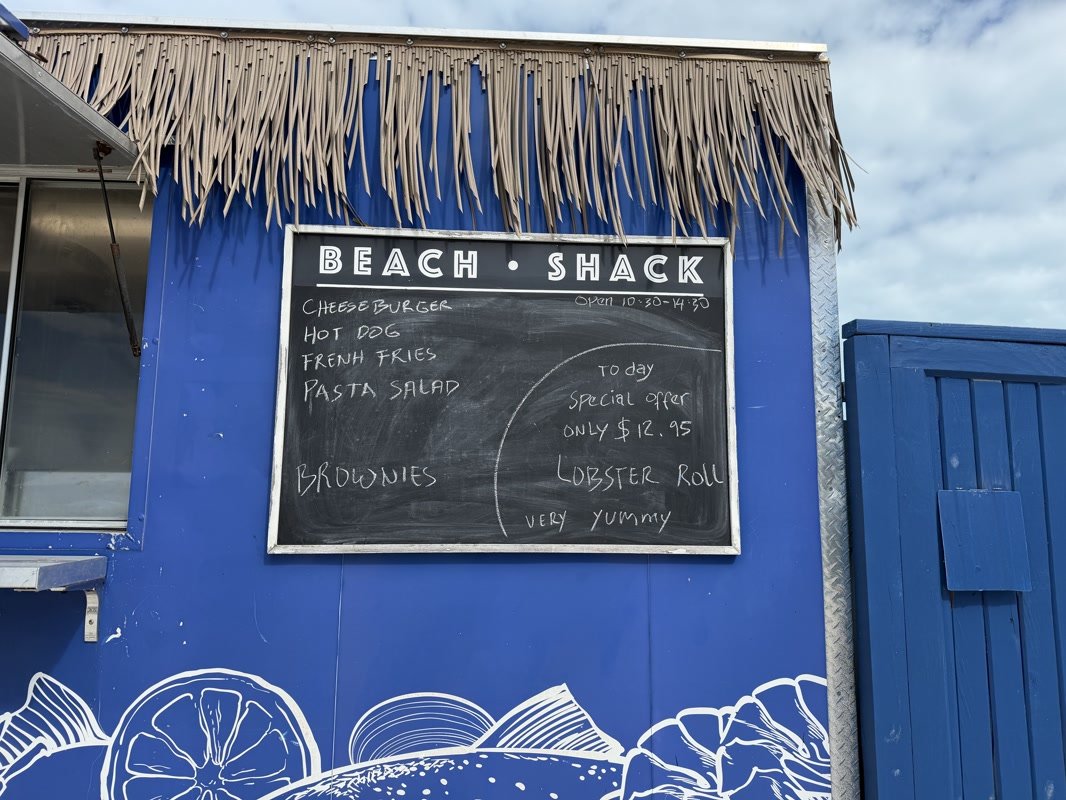 BEACH • SHACK
OPEN 10:30-14:30
CHEESEBURGER
HOT DOG
FRENH FRIES
PASTA SALAD
BROWNIES
TO day
Special offer
ONLY $12.95
LOBSTER ROLL
VERY YUMMY